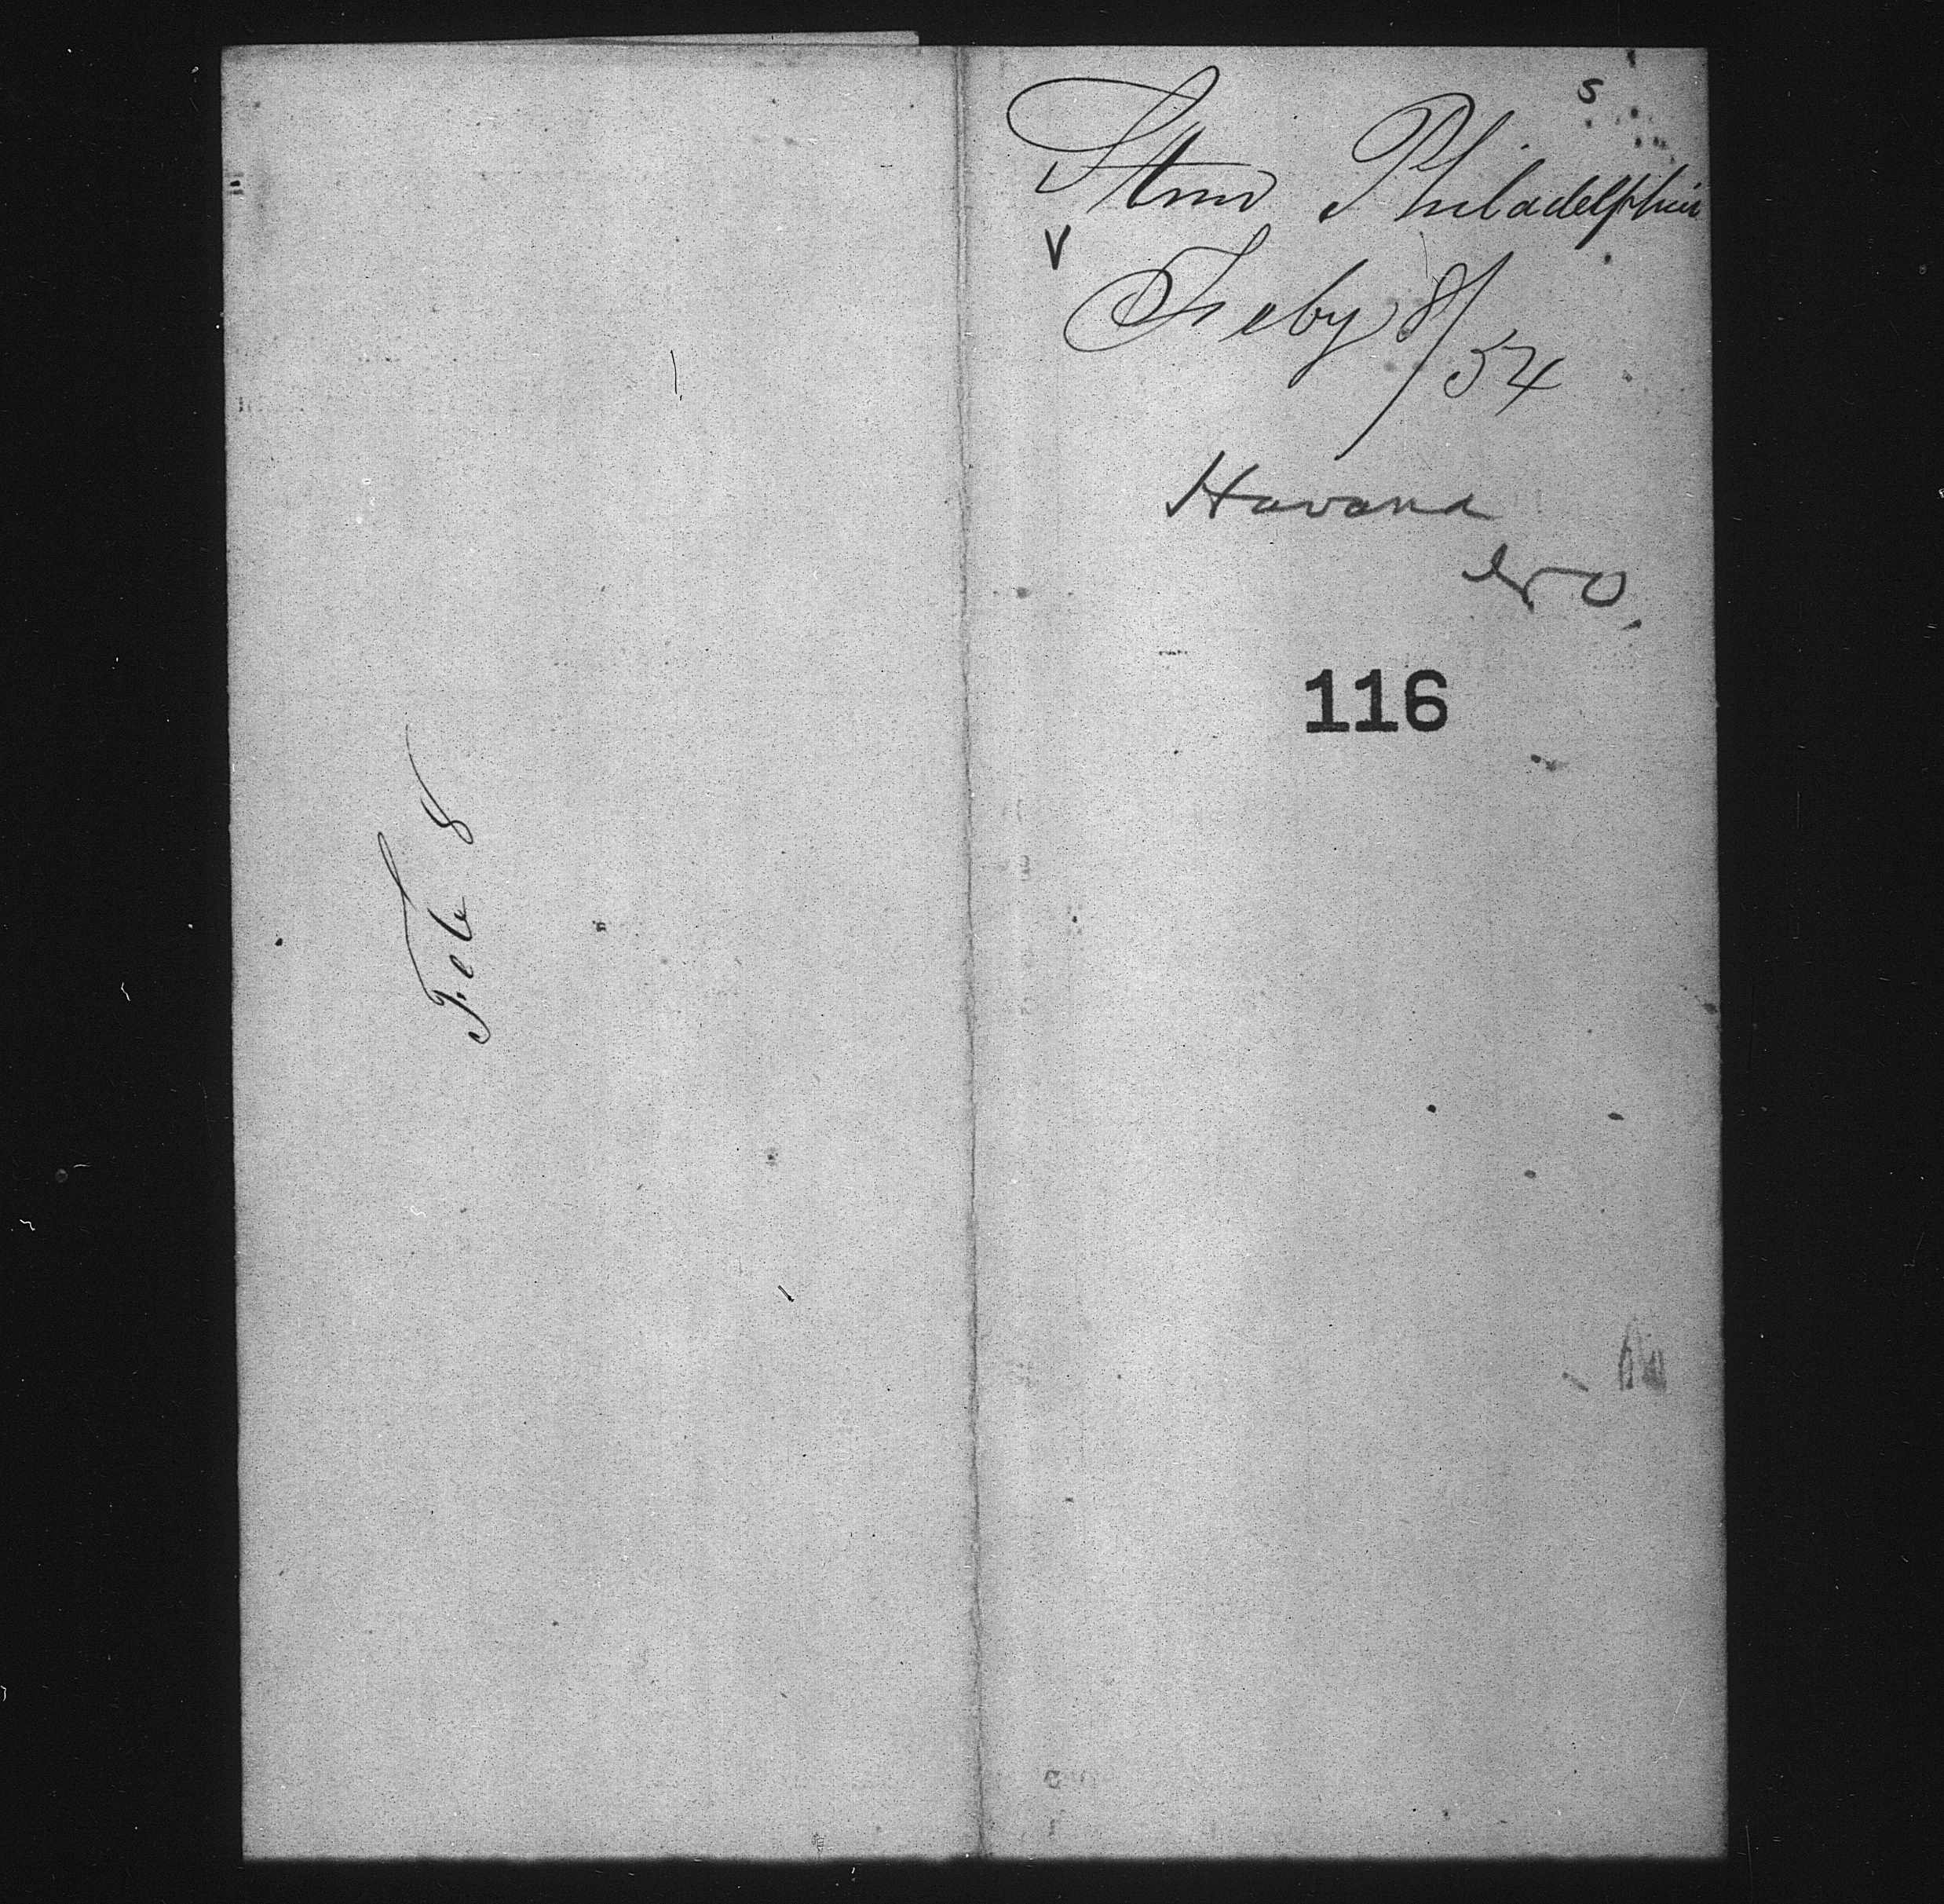 Feb 8
s
Stmr Philadelphia
v
Feby 8/54
Havana
N O,
116